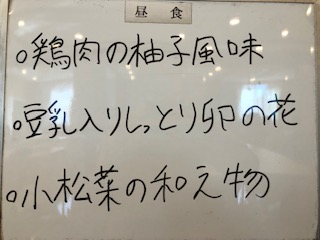 昼食
○鶏肉の柚子風味
○豆乳入りしっとり卯の花
○小松菜の和え物